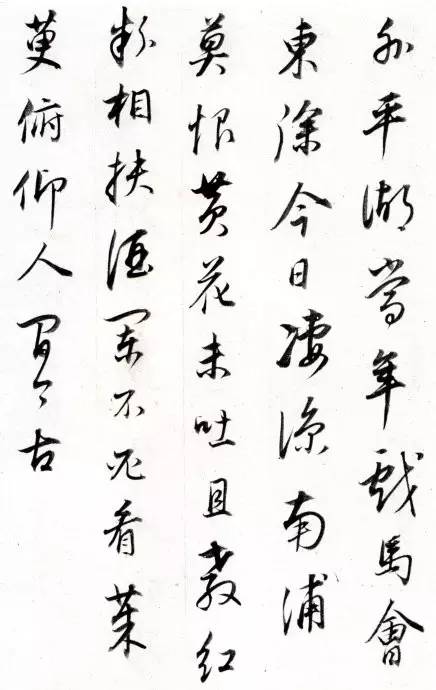 外平湖當年戲馬會
東徐今日凄涼南浦
莫恨黃花未吐且教紅
粉相扶酒闌不必看茱
萸俯仰人間今古